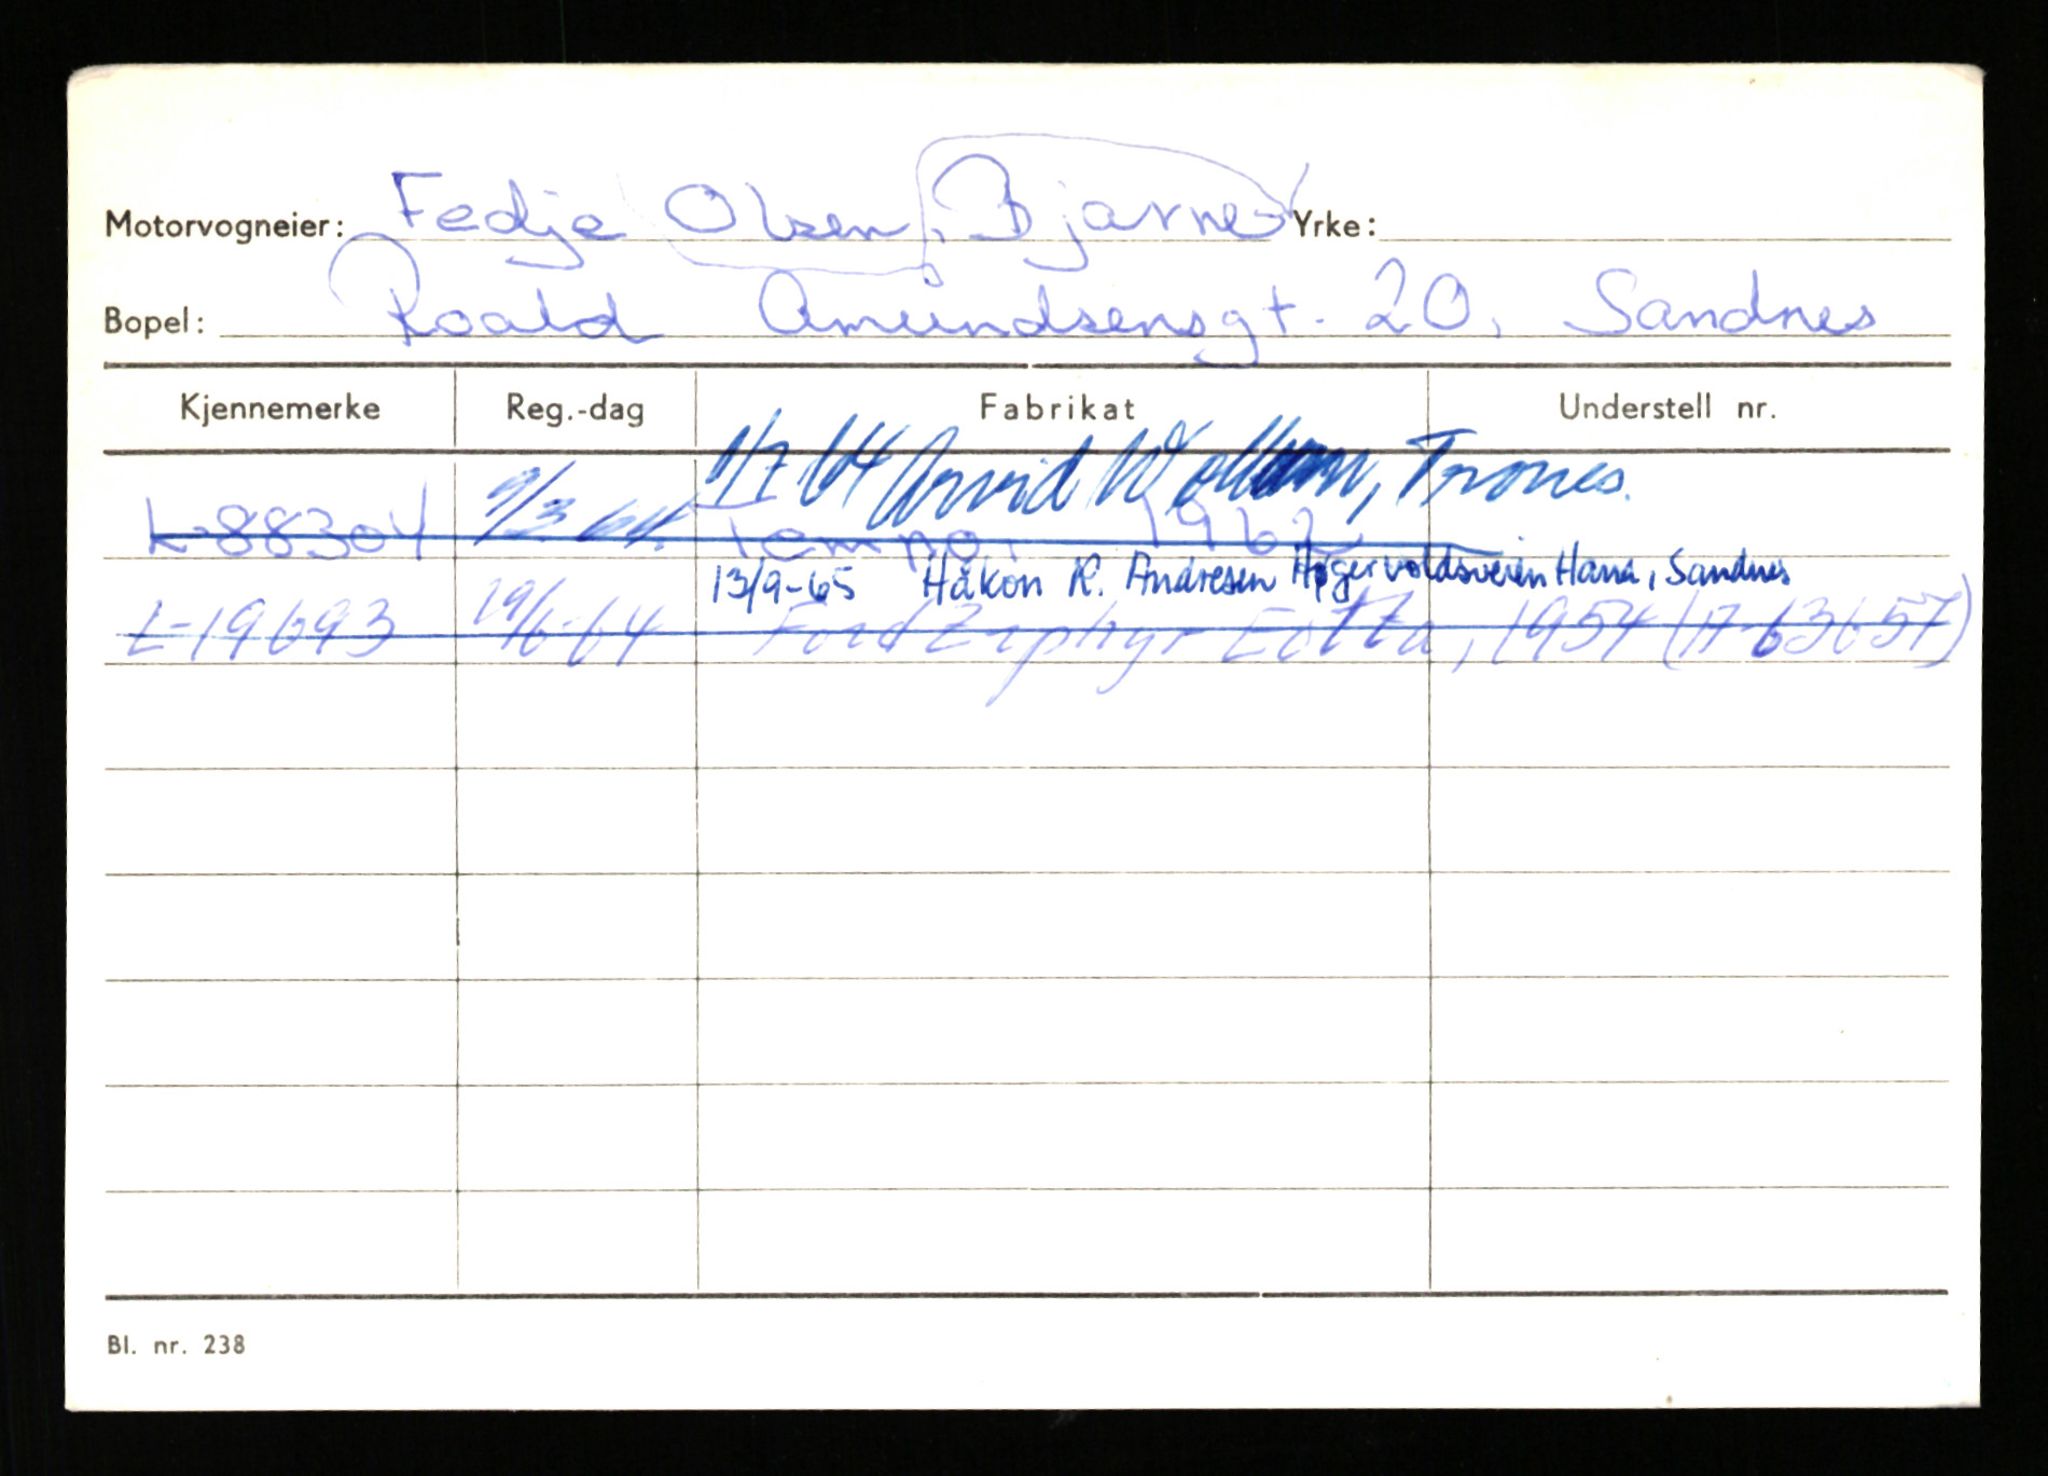 Motorvogneier: Fedje Olsen, Bjarne Yrke:
Bopel: Roald Amundsensgt. 20, Sandnes
Kjennemerke Reg.-dag Fabrikat Understell nr.
1/7 64 Arvid Trones.
L-88304 9/3 64. Tempo, 1962
13/9-65 Håkon R. Andresen Høgervoldsveien Hana, Sandnes
L-19693 29/6-64 Ford Zephyr 1954 (A-63657)
Bl. nr. 238